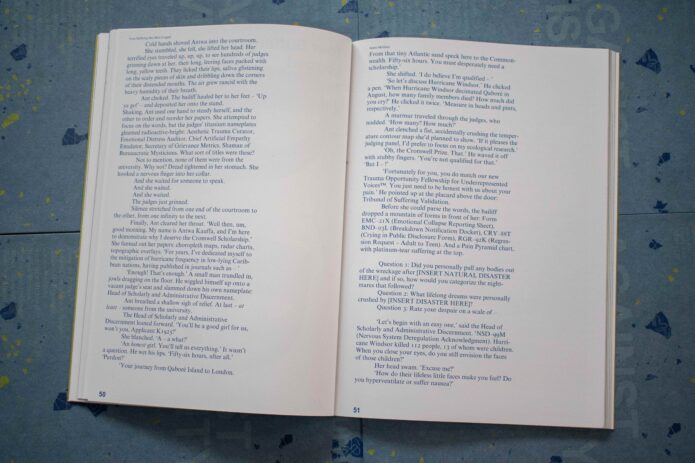 Cold hands shoved Antwa into the courtroom.
She stumbled, she felt, she lifted her head. Her
terrified eyes traveled up, up, up, to see hundreds of judges
grinning down at her, then long, leering faces packed with
long, yellow teeth. They licked their lips, saliva glistening
on the scaly pieces of skin and dribbling down the corners
of their distended mouths. The air grew rancid with the
heavy humidity of their breath.
Ant choked. The bailiff hauled her to her feet – 'Up
ya get' – and deposited her onto the stand.
Shaking, Ant used one hand to steady herself, and the
other to order and reorder her papers. She attempted to
focus on the words, but the judges' titanium nameplates
gleamed radioactive-bright: Aesthetic Trauma Curator,
Emotional Distress Auditor, Chief Artificial Empathy
Emulator, Secretary of Grievance Metrics, Shaman of
Bureaucratic Mysticisms. What sort of titles were these?
Not to mention, none of them were from the
university. Why not? Dread tightened in her stomach. She
hooked a nervous finger into her collar.
And she waited for someone to speak.
And she waited.
And she waited.
The judges just grinned.
Silence stretched from one end of the courtroom to
the other, from one infinity to the next.
Finally, Ant cleared her throat. 'Well then, um,
good morning. My name is Antwa Kauffa, and I'm here
to demonstrate why I deserve the Cromwell Scholarship.'
She fanned out her papers: choropleth maps, radar charts,
topographic overlays. 'For years, I've dedicated myself to
the mitigation of hurricane frequency in low-lying Carib-
bean nations, having published in journals such as –'
'Enough! That's enough.' A small man trundled in,
jowls dragging on the floor. He wiggled himself up onto a
vacant judge's seat and slammed down his own nameplate:
Head of Scholarly and Administrative Discernment.
Ant breathed a shallow sigh of relief. At last – at
least – someone from the university.
The Head of Scholarly and Administrative
Discernment leaned forward. 'You'll be a good girl for us,
won't you, Applicant K1925?'
She blanched. 'A – a what?'
'An honest girl. You'll tell us everything.' It wasn't
a question. He wet his lips. 'Fifty-six hours, after all.'
'Pardon?'
'Your journey from Qaboré Island to London.
50
From that tiny Atlantic sand speck here to the Common-
wealth. Fifty-six hours. You must desperately need a
scholarship.'
She shifted. 'I do believe I'm qualified –'
'So let's discuss Hurricane Windsor.' He clicked
a pen. 'When Hurricane Windsor decimated Qaboré in
August, how many family members died? How much did
you cry?' He clicked it twice. 'Measure in heads and pints,
respectively.'
A murmur traveled through the judges, who
nodded. 'How many? How much?'
Ant clenched a fist, accidentally crushing the temper-
ature contour map she'd planned to show. 'If it pleases the
judging panel, I'd prefer to focus on my ecological research.'
'Oh, the Cromwell Prize. That.' He waved it off
with stubby fingers. 'You're not qualified for that.'
'But I – !'
'Fortunately for you, you do match our new
Trauma Opportunity Fellowship for Underrepresented
Voices™. You just need to be honest with us about your
pain.' He pointed up at the placard above the door:
Tribunal of Suffering Validation.
Before she could parse the words, the bailiff
dropped a mountain of forms in front of her: Form
EMC-21X (Emotional Collapse Reporting Sheet),
BND-03L (Breakdown Notification Docket), CRY-88T
(Crying in Public Disclosure Form), RGR-92K (Regres-
sion Request – Adult to Teen). And a Pain Pyramid Chart,
with platinum-tear suffering at the top.
Question 1: Did you personally pull any bodies out
of the wreckage after [INSERT NATURAL DISASTER
HERE] and if so, how would you categorize the night-
mares that followed?
Question 2: What lifelong dreams were personally
crushed by [INSERT DISASTER HERE]?
Question 3: Rate your despair on a scale of –
'Let's begin with an easy one,' said the Head of
Scholarly and Administrative Discernment. 'NSD-99M
(Nervous System Deregulation Acknowledgment). Hurri-
cane Windsor killed 112 people, 13 of whom were children.
When you close your eyes, do you still envision the faces
of those children?'
Her head swam. 'Excuse me?'
'How do their lifeless little faces make you feel? Do
you hyperventilate or suffer nausea?'
51